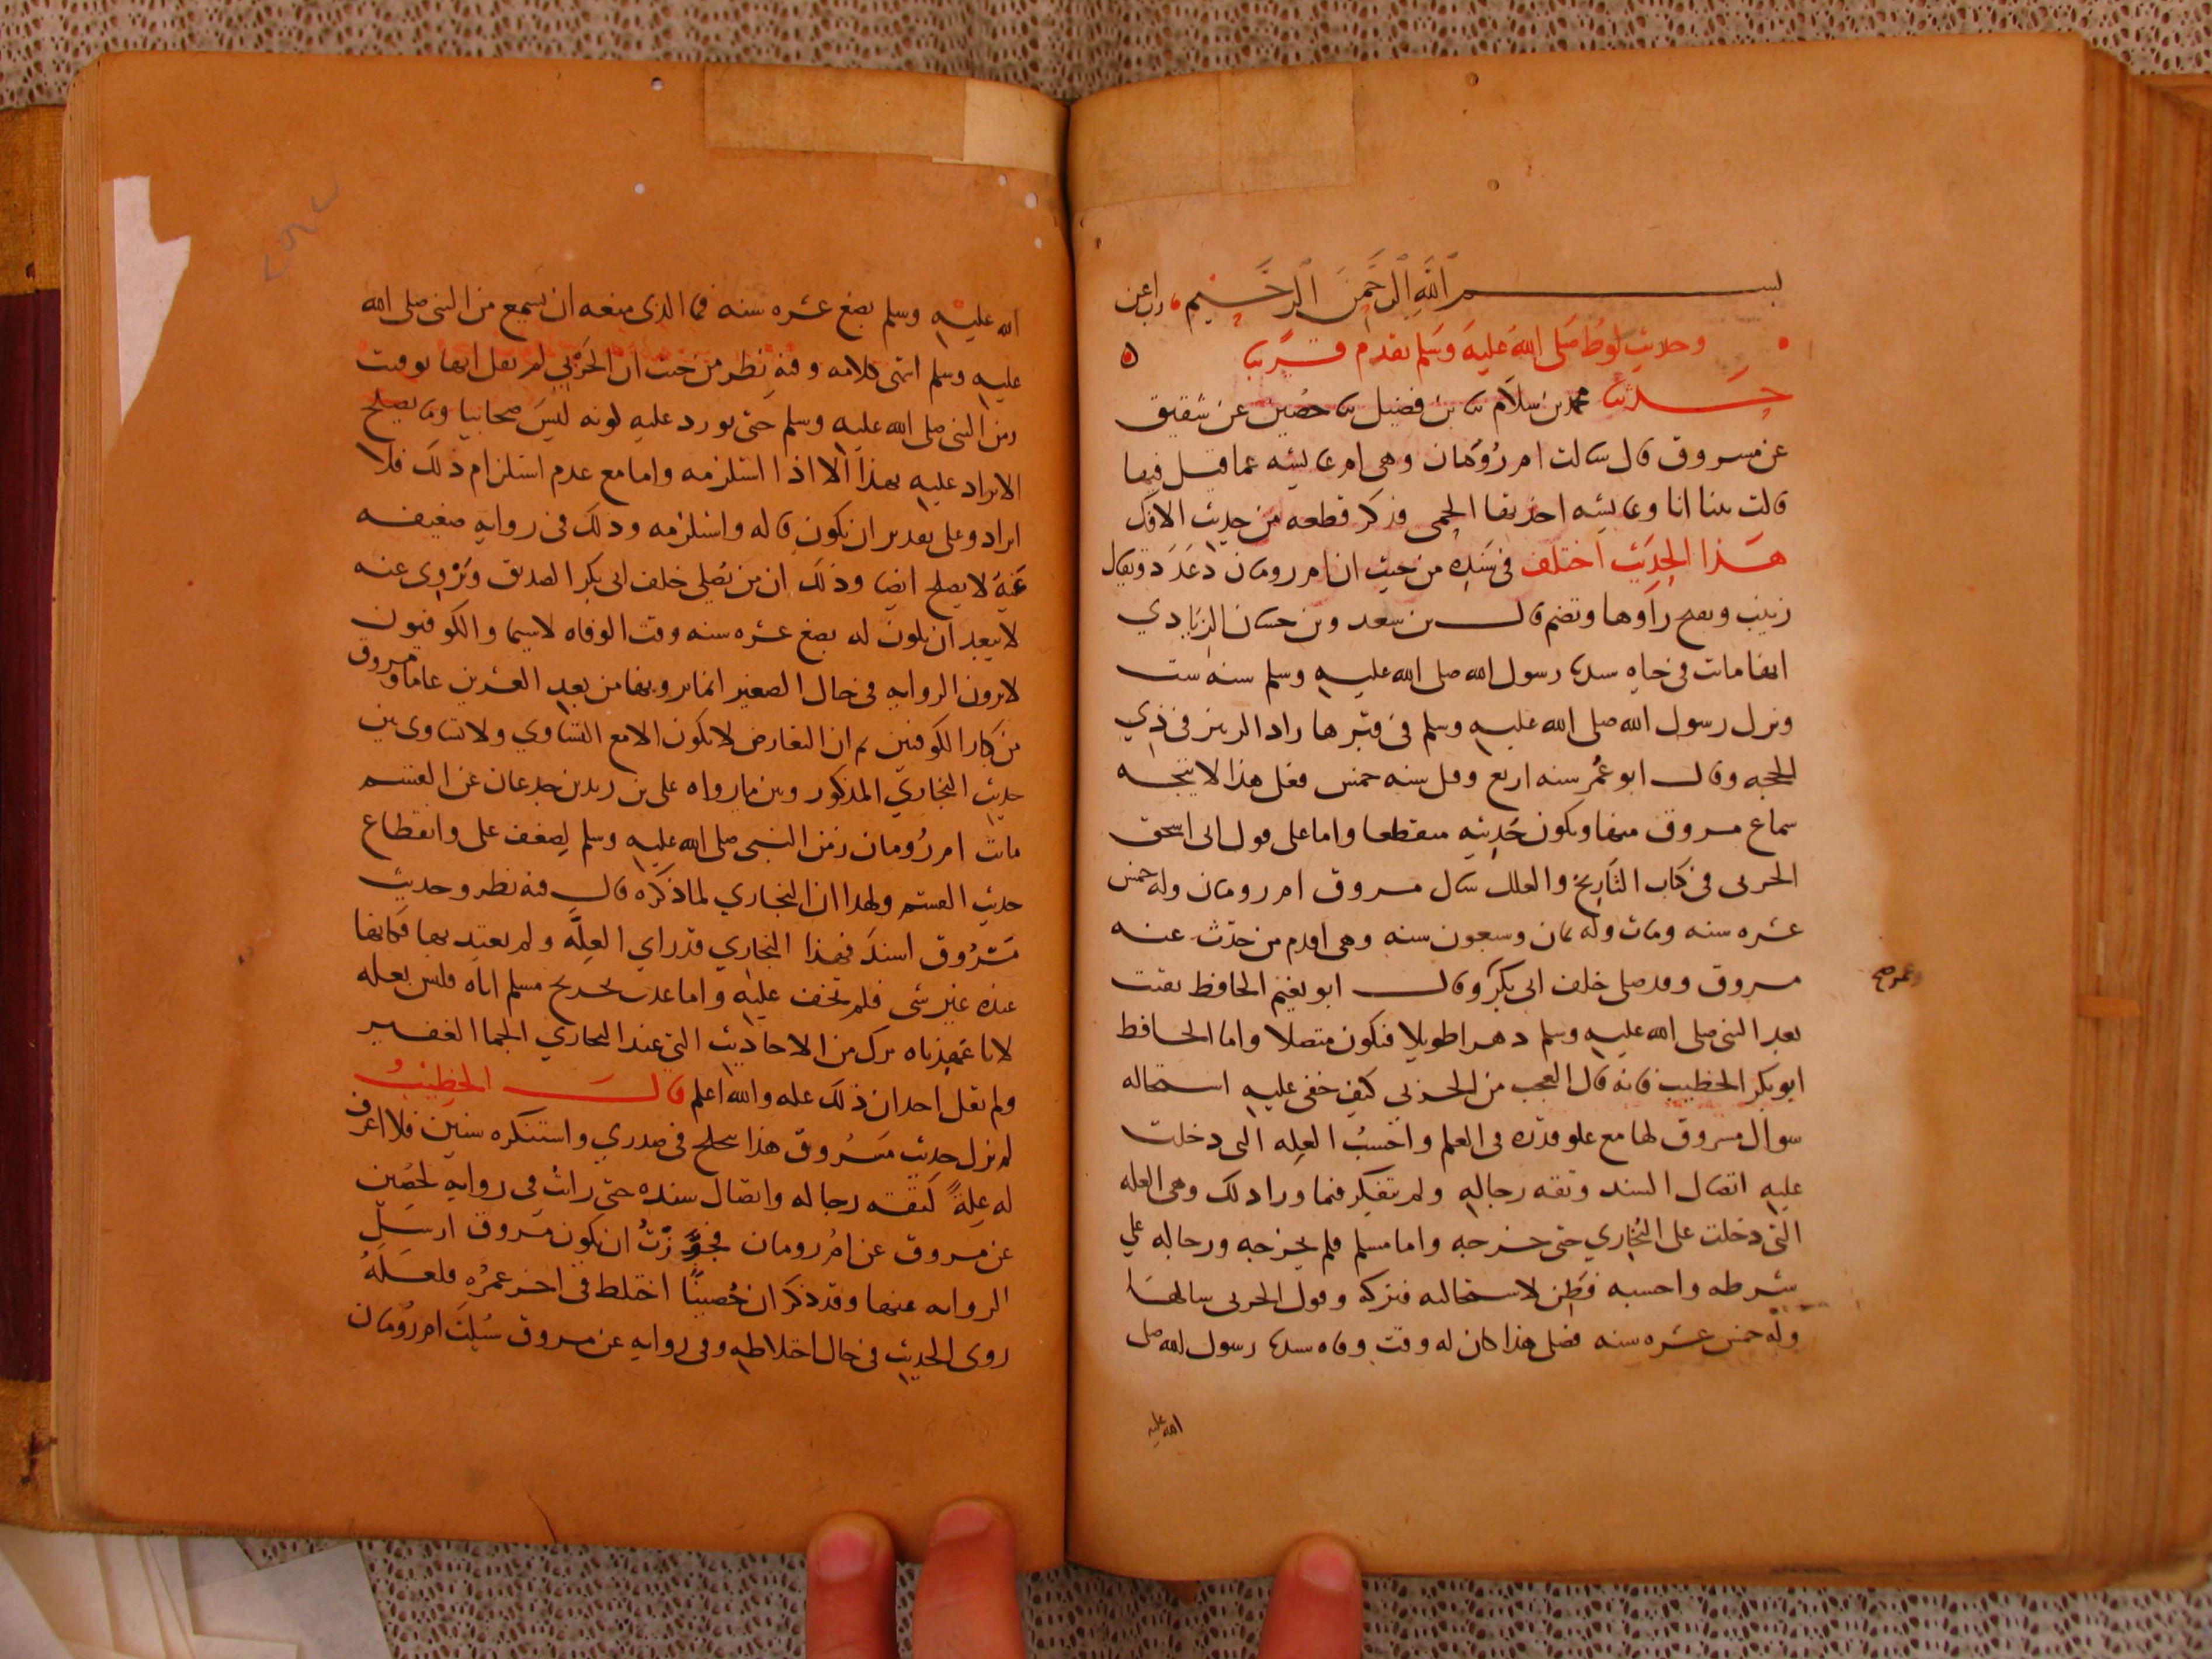 بسم الله الرحمن الرحيم رب اعن
وحديث لوط صلى الله عليه وسلم تقدم قريبا
حدثنا محمد بن سلام ثنا بن فضيل ثنا حصين عن شقيق
عن مسروق قال سالت ام رومان وهي ام عايشه عما قيل فيها
قالت بينا انا وعايشه اخذتها الحمى فذكر قطعه من حديث الافك
هذا الحديث اختلف في سنده من حيث ان ام رومان دعد ويقال
زينب وبفتح راوها وتضم قال بن سعد وبن حسان الزيادي
انها ماتت في حياه سيدنا رسول الله صلى الله عليه وسلم سنه ست
ونزل رسول الله صلى الله عليه وسلم في قبرها زاد الزبير في ذي
الحجه وقال ابو عمر سنه اربع وقيل سنه خمس فعلى هذا لا يتجه
سماع مسروق منها ويكون حديثه منقطعا واما على قول ابي اسحق
الحربي في كتاب التاريخ والعلل سال مسروق ام رومان وله خمس
عشره سنه ومات وله ثمان وسبعون سنه وهي اقدم من حدث عنه
مسروق وقد صلى خلف ابي بكر وقال ابو نعيم الحافظ بقيت
وعمر صح
بعد النبي صلى الله عليه وسلم دهرا طويلا فيكون متصلا واما الحافظ
ابو بكر الخطيب فانه قال العجب من الحربي كيف خفي عليه استحاله
سوال مسروق لها مع علو قدره في العلم واحسب العله التي دخلت
عليه اتصال السند وثقه رجاله ولم يتفكر فيما ورا ذلك وهي العله
التي دخلت على البخاري حتى خرجه واما مسلم فلم يخرجه ورجاله على
شرطه واحسبه فطن لاستحالته فتركه وقول الحربي سالها
وله خمس عشره سنه فعلى هذا كان له وقت وفاه سيدنا رسول الله صلى
الله عليه
الله عليه وسلم بضع عشره سنه فما الذي منعه ان يسمع من النبي صلى الله
عليه وسلم انتهى كلامه وفيه نظر من حيث ان الحربي لم يقل انها توفيت
زمن النبي صلى الله عليه وسلم حتى يورد عليه كونه ليس صحابيا وما يصلح
الايراد عليه بهذا الا اذا استلزمه واما مع عدم استلزام ذلك فلا
ايراد وعلى تقدير ان يكون قاله واستلزمه وذلك في روايه ضعيفه
عنه لا يصلح ايضا وذلك ان من يصلي خلف ابي بكر الصديق ويروي عنه
لا يبعد ان يكون له بضع عشره سنه وقت الوفاه لاسيما والكوفيون
لا يرون الروايه في حال الصغير انما يرويها من بعد العشرين عاما ومسروق
من كبار الكوفيين ثم ان التعارض لا يكون الا مع التساوي ولا تساوي بين
حديث البخاري المذكور وبين ما رواه على بن زيد بن جدعان عن القسم
ماتت ام رومان زمن النبي صلى الله عليه وسلم لضعف على وانقطاع
حديث القسم ولهذا ان البخاري لما ذكره قال فيه نظر وحديث
مسروق اسند فهذا البخاري قد راي العله ولم يعتد بها فكانها
عنده غير شي فلم تخف عليه واما عدم تخريج مسلم اياه فليس بعله
لانا عهدناه ترك من الاحاديث التي عند البخاري الجما الغفير
ولم يقل احد ان ذلك عله والله اعلم قال الخطيب
لم نزل حديث مسروق هذا يتخلج في صدري واستنكره سنين فلا اعرف
له علة لثقه رجاله واتصال سنده حتى رايت في روايه لحصين
عن مسروق عن ام رومان فجوزت ان يكون مسروق ارسل
الروايه عنها وقد ذكر ان حصينا اختلط في اخر عمره فلعله
روى الحديث في حال اختلاطه وفي روايه عن مسروق سيلت ام رومان